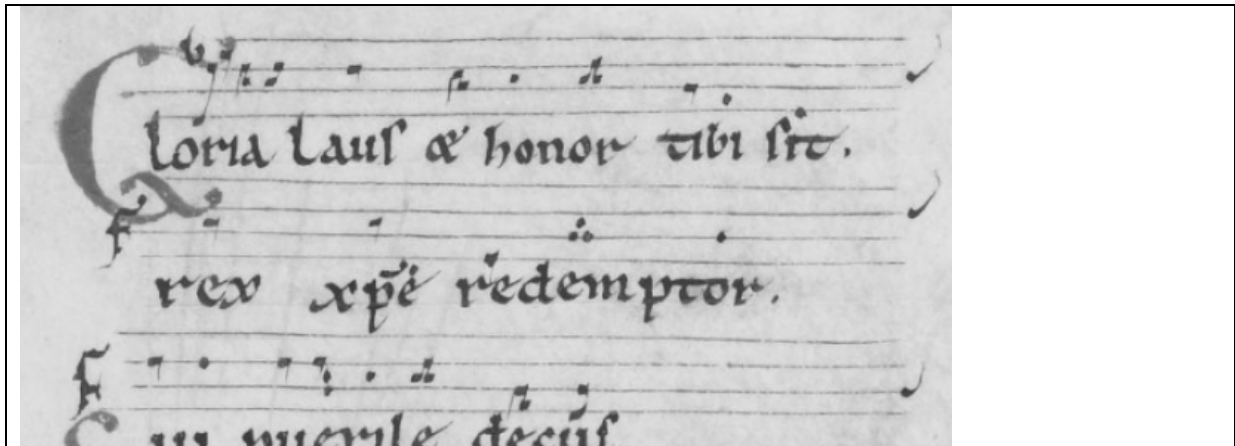 Gloria laus & honor tibi sit.
rex xp̄e redemptor.
Cui puerile decus